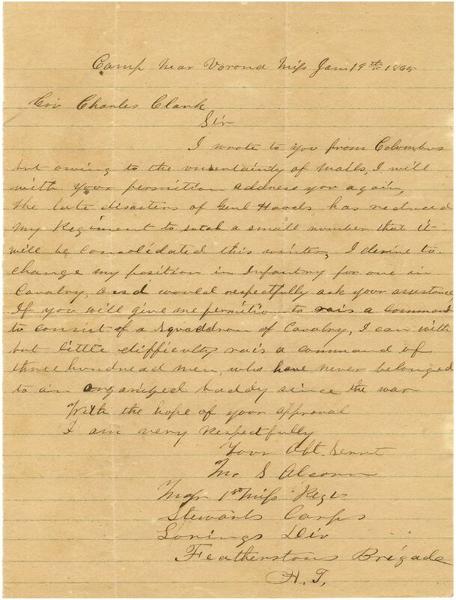 Camp Near Verona Miss Jan 19th 1865
Gov Charles Clark
Sir
I wrote to you from Columbus
but owing to the uncertainty of mails, I will
with your permition address you again,
the late disasters of Genl Hoods has reduced
my Regiment to such a small number that it
will be consolidated this winter, I desire to
change my position in Infantry for one in
Cavalry, and would respectfully ask your assistance
If you will give me permition to rais a command
to consist of a Squaddron of Cavalry, I can with
but little difficulty rais a command of
three hundread men, who have never belonged
to an organized boddy since the war
With the hope of your approval
I am very Respectfully
Your Obt. Servt
Jno S Alcorn
Majr 1st Miss Regt
Stewarts Corps
Lorings Div
Featherstons Brigade
A. T.